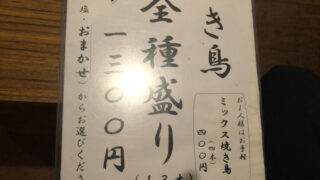 き鳥
お一人様はお手軽
ミックス焼き鳥
（四本）
四〇〇円
全種盛り
一三〇〇円
塩・おまかせ」からお選びくださ